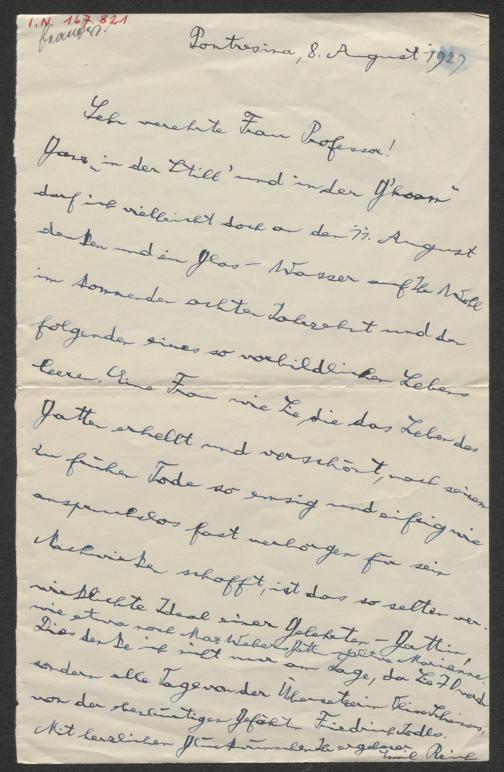 I.N. 167.821
Pontresina, 8. August 1927.
Sehr verehrte Frau Professor!
Ganz „in der Still' und in der G'hoam"
darf ich vielleicht doch an den 11. August
denken und ein Glas – Wasser auf Ihr Wohl
im kommenden achten Jahrzehnt und der
folgenden eines so vorbildlichen Lebens
leeren. Eine Frau wie Sie, die das Leben des
Gatten erhellt und verschönt, nach seinem
zu frühen Tode so emsig und eifrig wie
anspruchslos fast verborgen für sein
Nachwirken schafft, ist das so selten ver-
wirklichte Ideal einer Gelehrten-Gattin,
wie etwa noch Max Webers Marianne.
Dies denke ich nicht nur am Tage, da Sie 70 werden
sondern alle Tage von der Übersetzerin
von der ebenbürtigen Gefährtin Friedrich Jodls.
Mit herzlichen Glückwünschen Ihr ergebener
Emil Reich